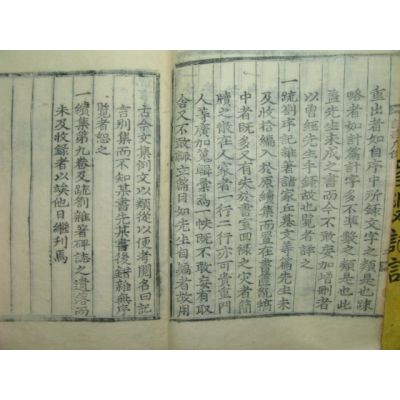 重出者如自序中所錄文字之類是也疎
略者如計篇計字多不準繫之類是也此
蓋先生未成之書而今不敢妄加增刪者
以曾經先生手錄故也覽者詳之
一疏劄序記雜著諸家丘墓文等篇先生未
及收錄入於原續集而且在書篋亂藁
中者旣多又有失於書室回祿之灾者簡
牘之散在人家者一行二行亦可貴重門
人等廣加蒐聯彙爲一帙旣不敢妄有取
舍又不敢輒立篇目如先生自編者故用
古今文集例文以類從以便考閱名曰記
言別集而不知某書先某書後錯雜無序
覽者恕之
一續集第九卷及疏劄雜著碑誌之遺落而
未及收錄者以竢他日繼刊焉
記言